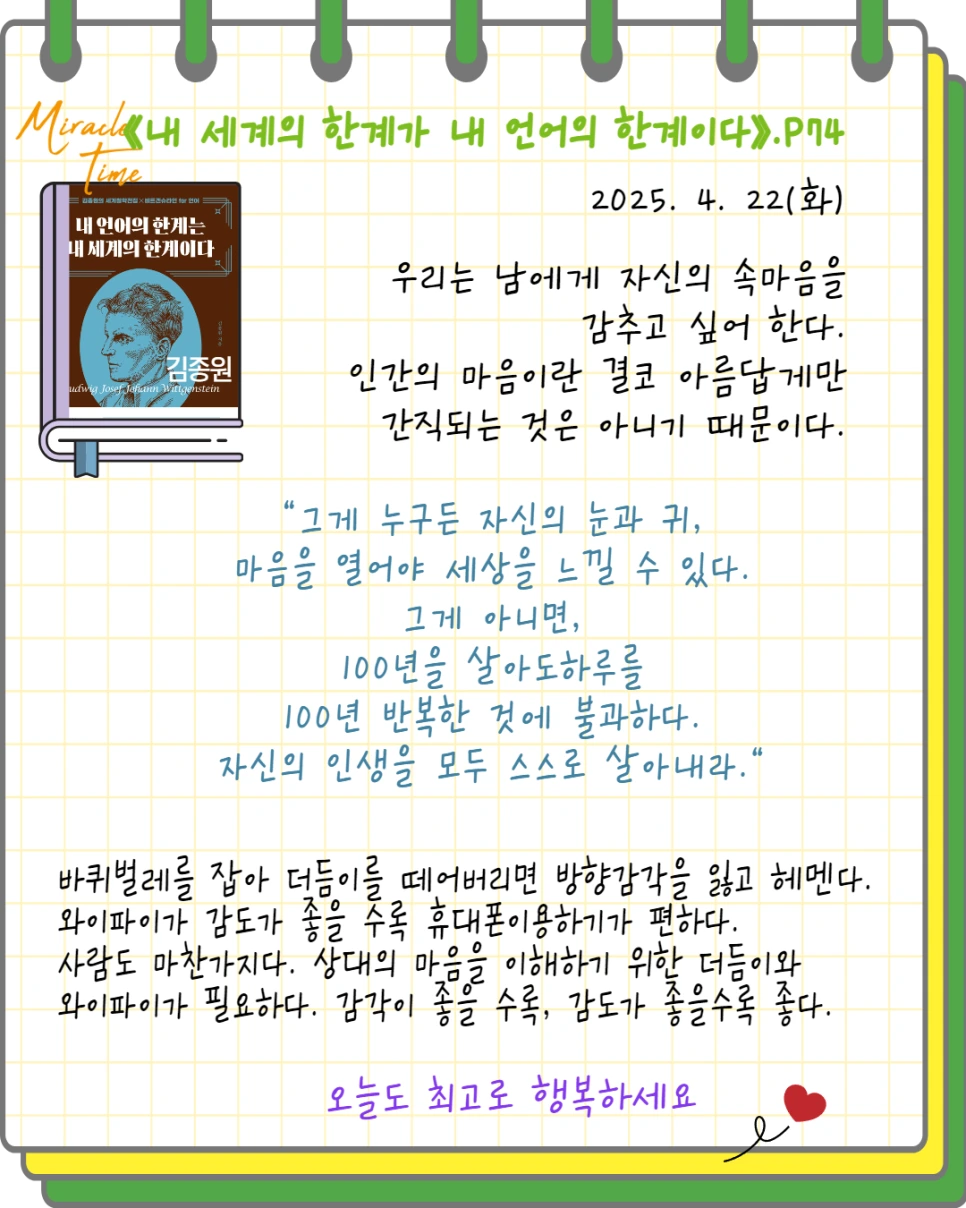 Miracle
Time
《내 세계의 한계가 내 언어의 한계이다》.P74
2025. 4. 22(화)
김종원의 세계철학전집 × 비트겐슈타인 for 언어
내 언어의 한계는
내 세계의 한계이다
김종원
udwig Josef Johann Wittgenstein
우리는 남에게 자신의 속마음을
감추고 싶어 한다.
인간의 마음이란 결코 아름답게만
간직되는 것은 아니기 때문이다.
“그게 누구든 자신의 눈과 귀,
마음을 열어야 세상을 느낄 수 있다.
그게 아니면,
100년을 살아도하루를
100년 반복한 것에 불과하다.
자신의 인생을 모두 스스로 살아내라.“
바퀴벌레를 잡아 더듬이를 떼어버리면 방향감각을 잃고 헤멘다.
와이파이가 감도가 좋을 수록 휴대폰이용하기가 편하다.
사람도 마찬가지다. 상대의 마음을 이해하기 위한 더듬이와
와이파이가 필요하다. 감각이 좋을 수록, 감도가 좋을수록 좋다.
오늘도 최고로 행복하세요